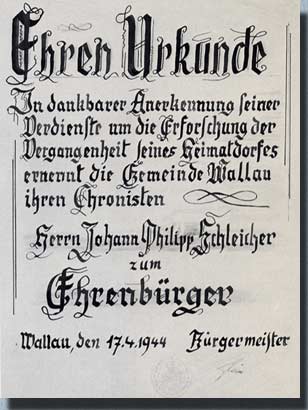 Ehren Urkunde
In dankbarer Anerkennung seiner
Verdienste um die Erforschung der
Vergangenheit seines Heimatdorfes
ernennt die Gemeinde Wallau
ihren Chronisten
Herrn Johann Philipp Schleicher
zum
Ehrenbürger
Wallau, den 17.4.1944 Bürgermeister